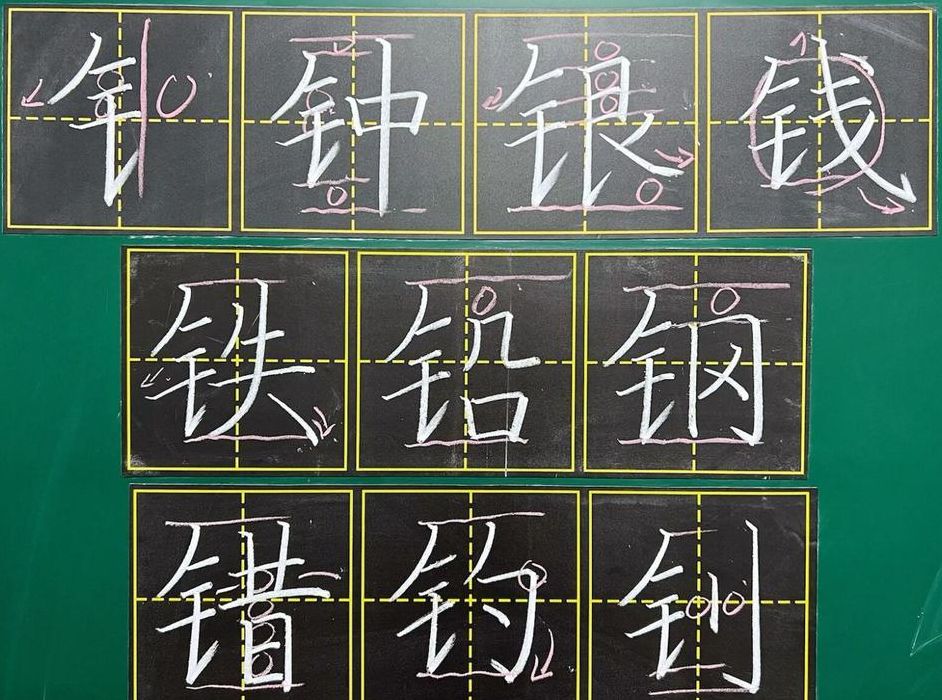 钅钟银钱
铁铅钢
错钓钊